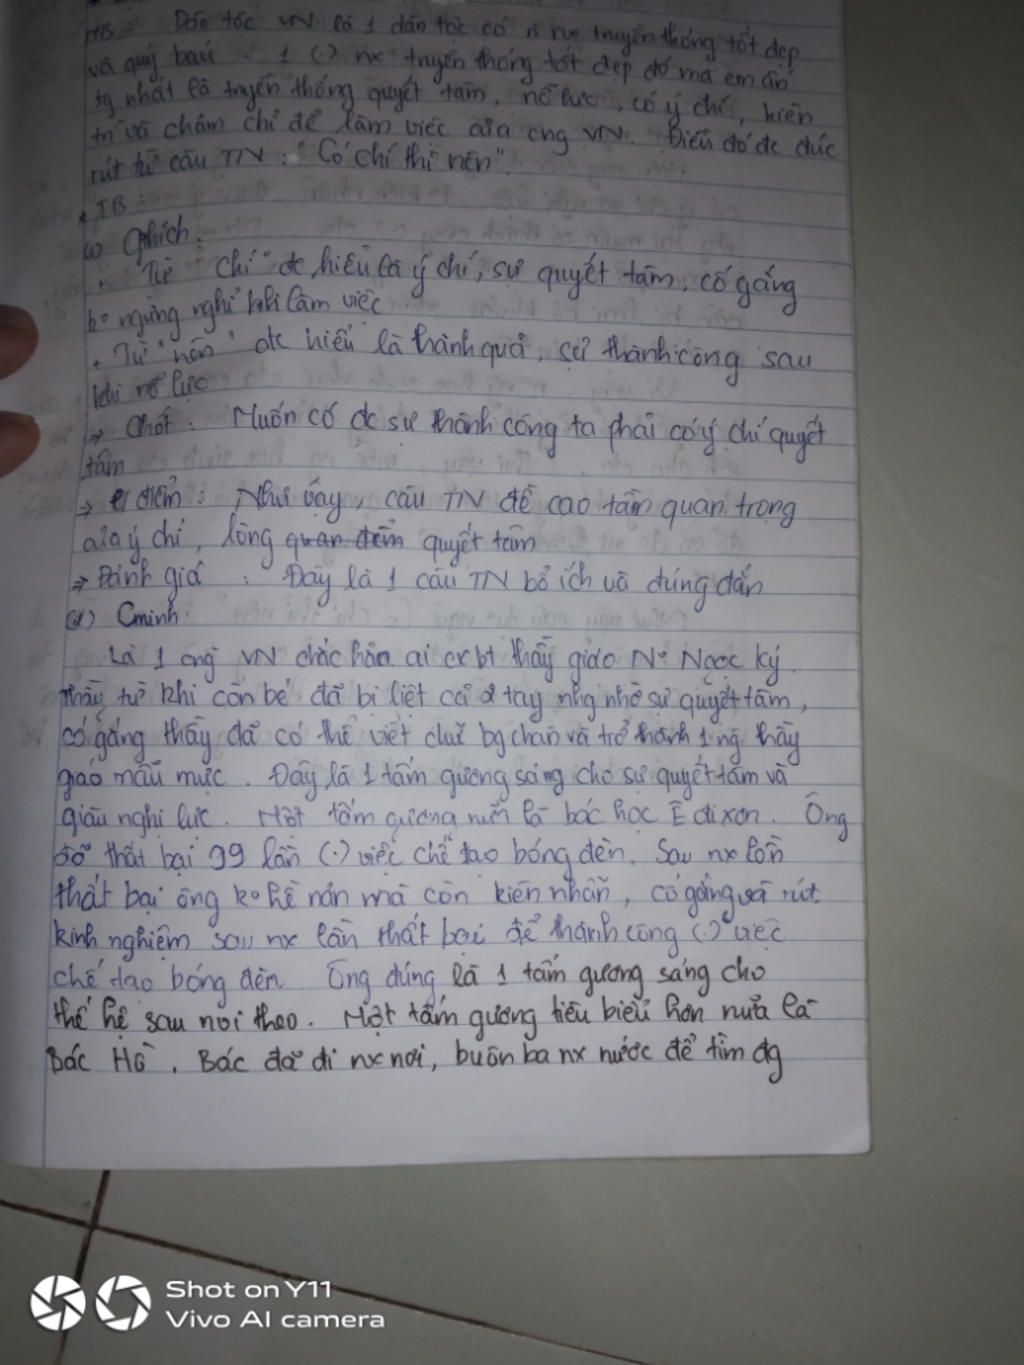 MB: Dân tộc VN là 1 dân tộc có n` nx truyền thống tốt đẹp
và quý báu. 1 (.) nx truyền thống tốt đẹp đó mà em ấn
tg nhất là truyền thống quyết tâm, nỗ lực, có ý chí, kiên
trì và chăm chỉ để làm việc của cng VN. Điều đó đc đúc
rút từ câu TN: "Có chí thì nên".
* TB:
(1) Gthích:
+ Từ "chí" đc hiểu là ý chí, sự quyết tâm, cố gắng
ko ngừng nghỉ khi làm việc
+ Từ "nên" đc hiểu là thành quả, sự thành công sau
khi nỗ lực
=> Chốt: Muốn có đc sự thành công ta phải có ý chí quyết
tâm
=> điểm: Như vậy, câu TN đề cao tầm quan trọng
của ý chí, lòng quan điểm quyết tâm
=> Đánh giá: Đây là 1 câu TN bổ ích và đúng đắn
(2) Cminh:
Là 1 cng VN chắc hẳn ai cx bt thầy giáo N° Ngọc Ký.
Thầy từ khi còn bé đã bị liệt cả 2 tay nhg nhờ sự quyết tâm,
cố gắng thầy đã có thể viết chữ bg chân và trở thành 1 ng thầy
giáo mẫu mực. Đây là 1 tấm gương sáng cho sự quyết tâm và
giàu nghị lực. Một tấm gương nữa là bác học Ê đi xơn. Ông
đã thất bại 99 lần (.) việc chế tạo bóng đèn. Sau nx lần
thất bại ông ko hề nản mà còn kiên nhẫn, cố gắng và rút
kinh nghiệm sau nx lần thất bại để thành công (.) việc
chế tạo bóng đèn. Ông đúng là 1 tấm gương sáng cho
thế hệ sau noi theo. Một tấm gương tiêu biểu hơn nữa là
Bác Hồ. Bác đã đi nx nơi, buôn ba nx nước để tìm đg
Shot on Y11
Vivo AI camera